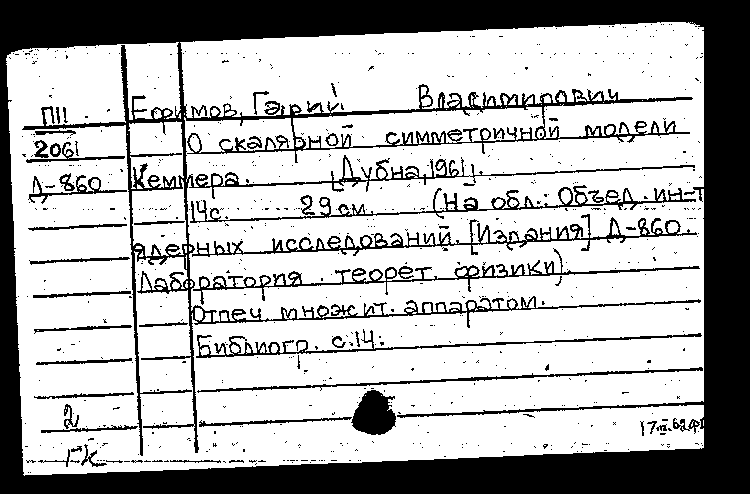 П11 Ефимов, Гарий Владимирович
2061 О скалярной симметричной модели
Д-860 Кеммера. [Дубна, 1961].
14с. 29 см. (На обл.: Объед. ин-т
ядерных исследований. [Издания] Д-860.
Лаборатория теорет. физики).
Отпеч. множит. аппаратом.
Библиогр. с.14.
2
17.III.62